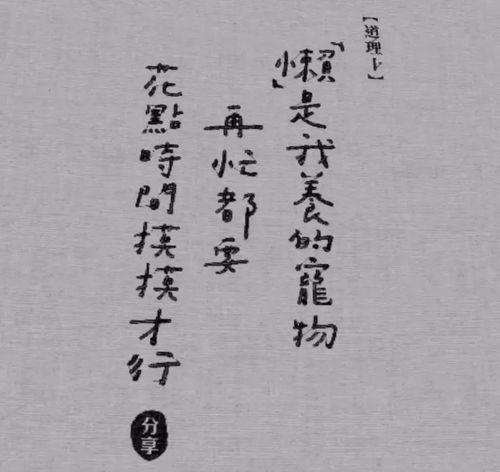 【道理卜】
「懶」是我養的寵物
再忙都要
花點時間摸摸才行
分享